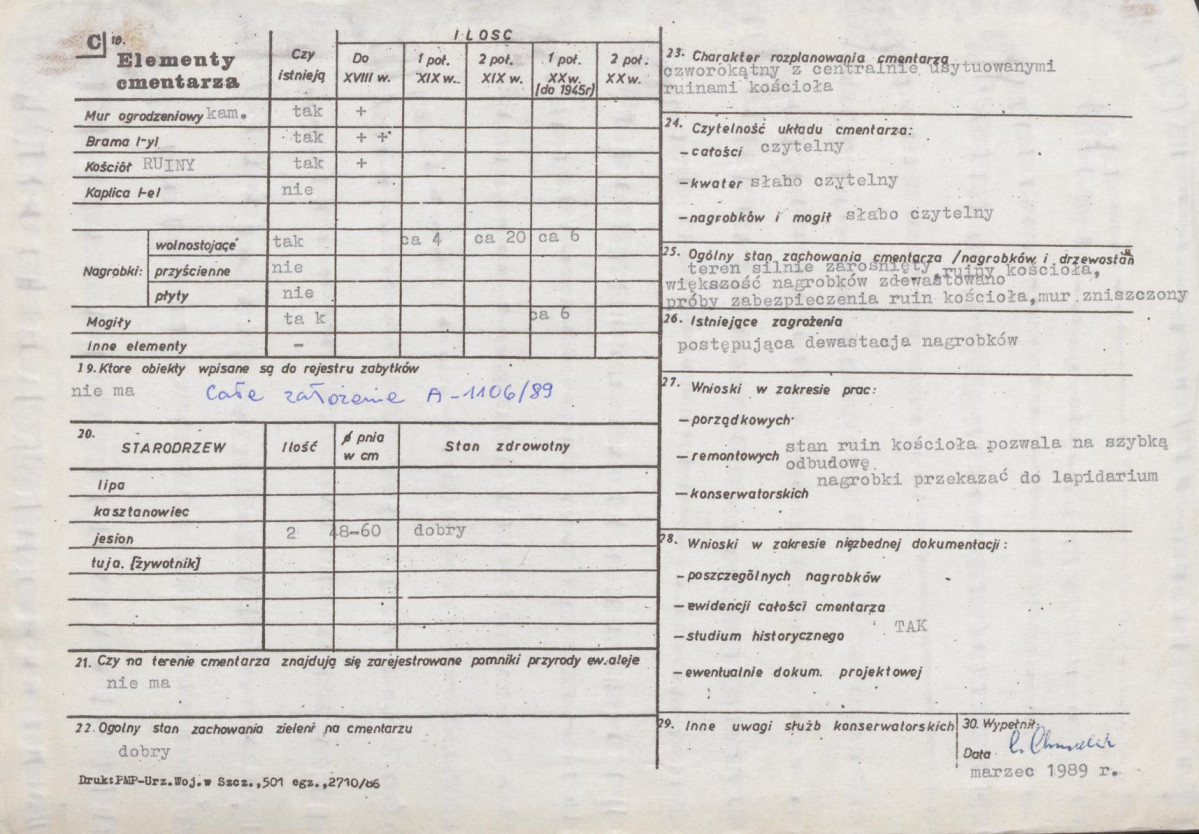 C 18. Elementy cmentarza
Czy istnieją
ILOSC
Do XVIII w.
1 poł. XIX w..
2 poł. XIX w.
1 poł. XX w. (do 1945r)
2 poł. XX w.
Mur ogrodzeniowy kam. tak +
Brama I-yl tak + +
Kościół RUINY tak +
Kaplica I-el nie
Nagrobki:
wolnostojące tak ca 4 ca 20 ca 6
przyścienne nie
płyty nie
Mogiły ta k ca 6
Inne elementy –
19. Ktore obiekty wpisane są do rejestru zabytków
nie ma Całe założenie A-1106/89
20. STARODRZEW Ilość ϕ pnia w cm Stan zdrowotny
lipa
kasztanowiec
jesion 2 48-60 dobry
tuja. [żywotnik]
21. Czy na terenie cmentarza znajdują się zarejestrowane pomniki przyrody ew. aleje
nie ma
22. Ogolny stan zachowania zieleni na cmentarzu
dobry
Druk: PMP-Urz.Woj.w Szcz.,501 egz.,2710/86
23. Charakter rozplanowania cmentarza
czworokątny z centralnie usytuowanymi
ruinami kościoła
24. Czytelność układu cmentarza:
– całości czytelny
– kwater słabo czytelny
– nagrobków i mogił słabo czytelny
25. Ogólny stan zachowania cmentarza /nagrobków i drzewostan
teren silnie zarośnięty, ruiny kościoła,
większość nagrobków zdewastowano
próby zabezpieczenia ruin kościoła, mur zniszczony
26. Istniejące zagrożenia
postępująca dewastacja nagrobków
27. Wnioski w zakresie prac:
– porządkowych
– remontowych stan ruin kościoła pozwala na szybką
odbudowę
nagrobki przekazać do lapidarium
– konserwatorskich
28. Wnioski w zakresie niezbednej dokumentacji:
– poszczególnych nagrobków
– ewidencji całości cmentarza
TAK
– studium historycznego
– ewentualnie dokum. projektowej
29. Inne uwagi służb konserwatorskich
30. Wypełnił:
Data
marzec 1989 r.